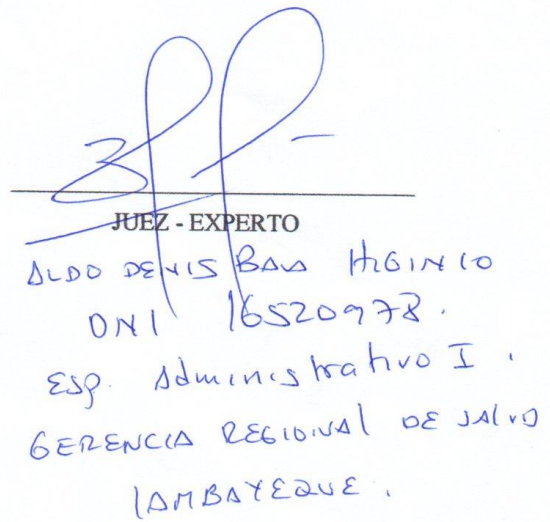 JUEZ - EXPERTO
ALDO DENIS BAVA HIGINIO
DNI 16520978.
ESP. Administrativo I.
GERENCIA REGIONAL DE SALUD
LAMBAYEQUE.